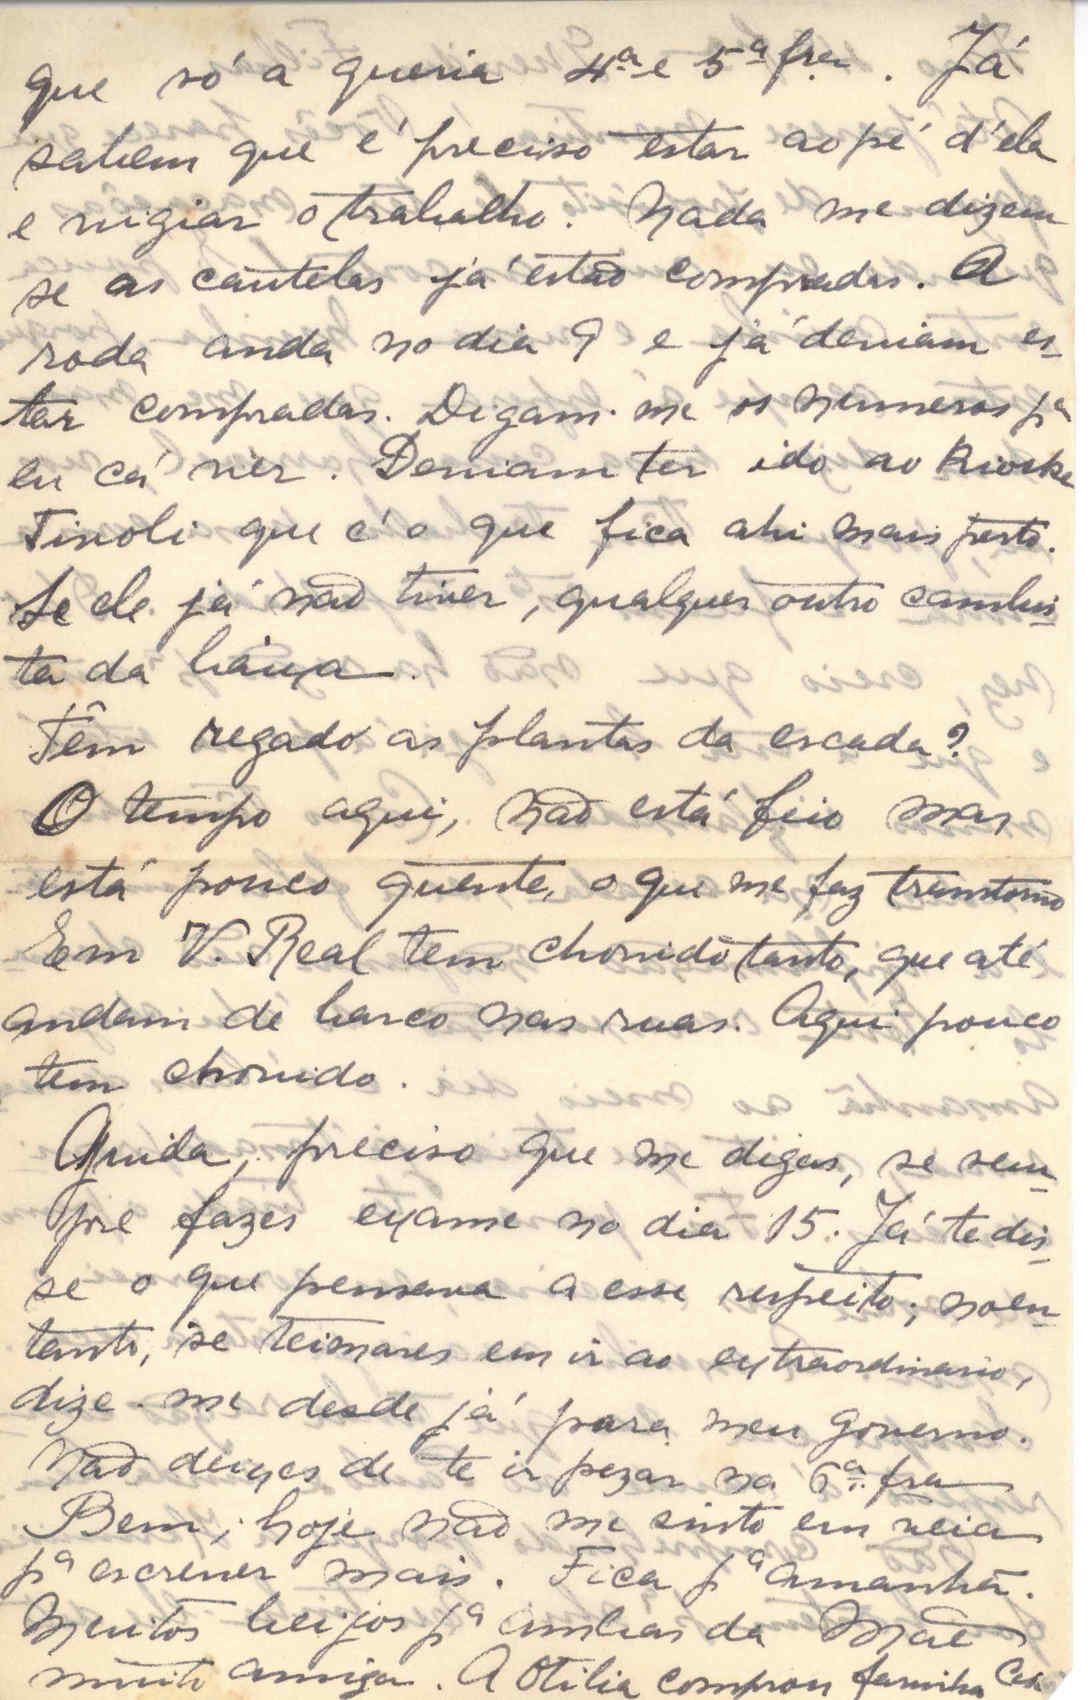 que só a queria 4ª e 5ª fra. Já
sabem que é preciso estar ao pé d'ela
e vigiar o trabalho. Nada me dizem
se as cautelas já estão compradas. A
roda anda no dia 9 e já deviam es-
tar compradas. Digam-me os numeros pª
eu cá ver. Deviam ter ido ao Kioske
Tivoli que é o que fica ahi mais perto.
Se ele já não tiver, qualquer outro cambis-
ta da baixa.
Têm regado as plantas da escada?
O tempo aqui, não está feio mas
está pouco quente, o que me faz transtorno
Em V. Real tem chovido tanto, que até
andam de barco nas ruas. Aqui pouco
tem chovido.
Guida, preciso que me digas, se sem-
pre fazes exame no dia 15. Já te dis-
se o que pensava a esse respeito; no en-
tanto, se teimares em ir ao extraordinario,
dize-me desde já para meu governo.
Não deixes de te ir pezar na 6ª fra
Bem, hoje não me sinto em veia
pª escrever mais. Fica pª amanhã.
Muitos beijos pª ambas da Mãe
muito amiga. A Otilia comprou farinha